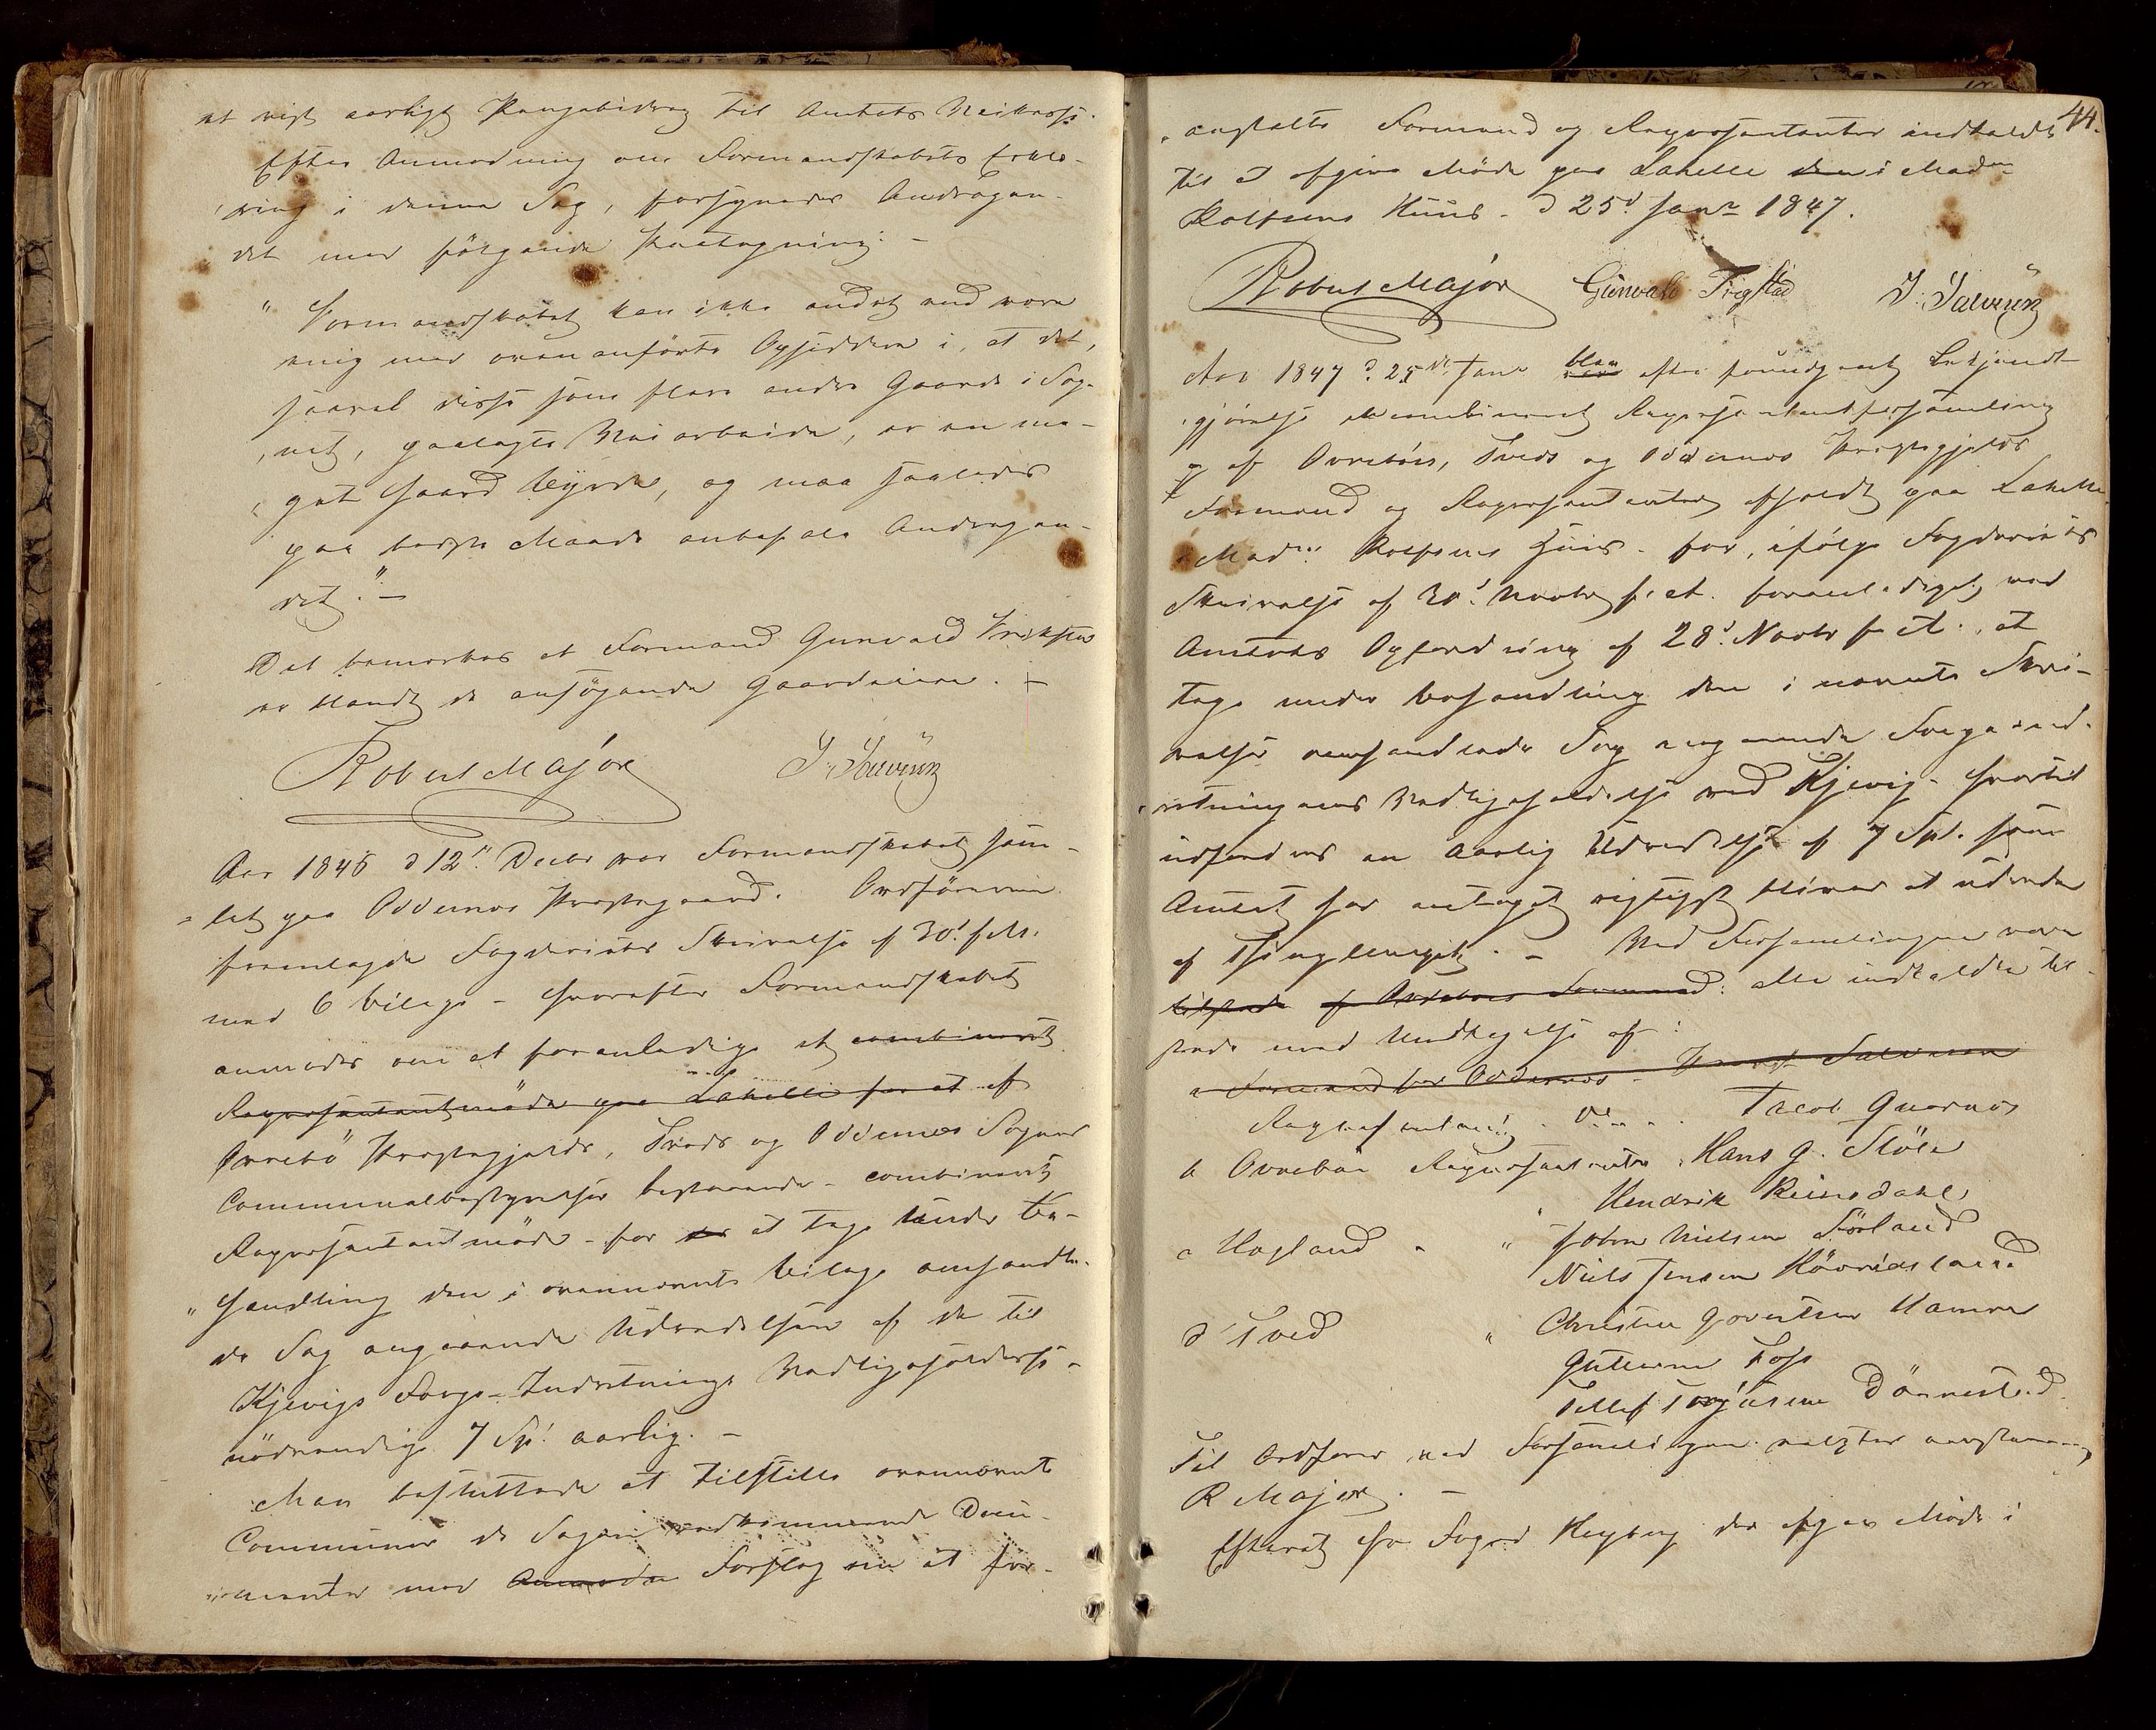 et vist aarligt Pengebidrag til Amtets Veikasse.
Efter Anmodning om Formandskabets Erklæ-
ring i denne Sag, forsynedes Andragen-
det med følgende Paategning: -
" Formandskabet kan ikke andet end være
enig med ovenanførte Opsiddere i, at det,
saavel disse som flere andre Gaarde i Sog-
net, paalagte Veiarbeide, er en me-
get haard Byrde, og maa saaledes
paa bedste Maade anbefale Andragen-
det." -
Det bemærkes at Formand Gunvald
er blandt de ansøgende Gaardeiere. -
Robert Major J. Salvesen
Aar 1846 d 12te Decbr var Formandskabet sam-
let paa Oddernes Præstegaard. Ordføreren
fremlagde Fogderiets Skrivelse af 30te f. M.
med 6 Bilage - hvorefter Formandskabet
anmodes om at foranledige et combineret
Repræsentantmøde paa Lahelle for at af
Øvrebø Præstegjelds, Tveds og Oddernes Sognes
Communalbestyrelser bestaaende - combineret
Repræsentantmøde - for at tage under Be-
handling den i ovennævnte Bilage omhandle-
de Sag angaaende Udredelsen af de til
Kjevigs Færge-Indretnings Vedligeholdelse
nödvendige 7 Sp. aarlig. -
Man besluttede at tilstille ovennævnte
Communer de Sagen vedkommende Docu-
menter med Anmodn Forslag om at for-
44.
anstalte Formænd og Repræsentanter indkaldte
til at afgive Møde paa Lahelle i Madm
Rolfsens Huus - d 25d Janr 1847.
Robert Major Gunvald Frigstad J. Salvesen
Aar 1847 d. 25de Janr blev efter foregaaet Bekjendt-
gjørelse combineret Repræsentantforsamling
af Øvrebøes, Tveds og Oddernes Præstegjelds
Formænd og Repræsentanter afholdt paa Lahelle
i Madm. Rolfsens Huus - for, ifølge Fogderiets
Skrivelse af 30d. Novbr f. A. foranlediget ved
Amtets Opfordring af 28d. Novbr f. A., at
tage under Behandling den i nævnte Skri-
velse omhandlede Sag angaaende Færgeind-
retningens Vedligeholdelse ved Kjevig - hvortil
udfordres en aarlig Udredelse af 7 Spd. som
Amtet har antaget rigtigst bliver at udrede
af Thinglauget. - Ved Forsamlingen vare
tilstede af Oddernes Formænd: alle indkaldte til-
stede med Undtagelse af:
a Formand for Oddernes - Salvesen
Repræsentant. Do Jacob Qvarnes
b Øvrebøe Repræsentanter. Hans G. Stöle
Hendrik Reinsdahl
c Hægland " " John Nielsen Förland
Niels Jensen
d Tved " Christen Govertsen Hamre
Guttorm Foss
Tellef Dönnestad.
Til Ordfører ved Forsamlingen valgtes eenstemmig
R Major. -
Efterat Hr Foged Heyberg der afgav Møde i